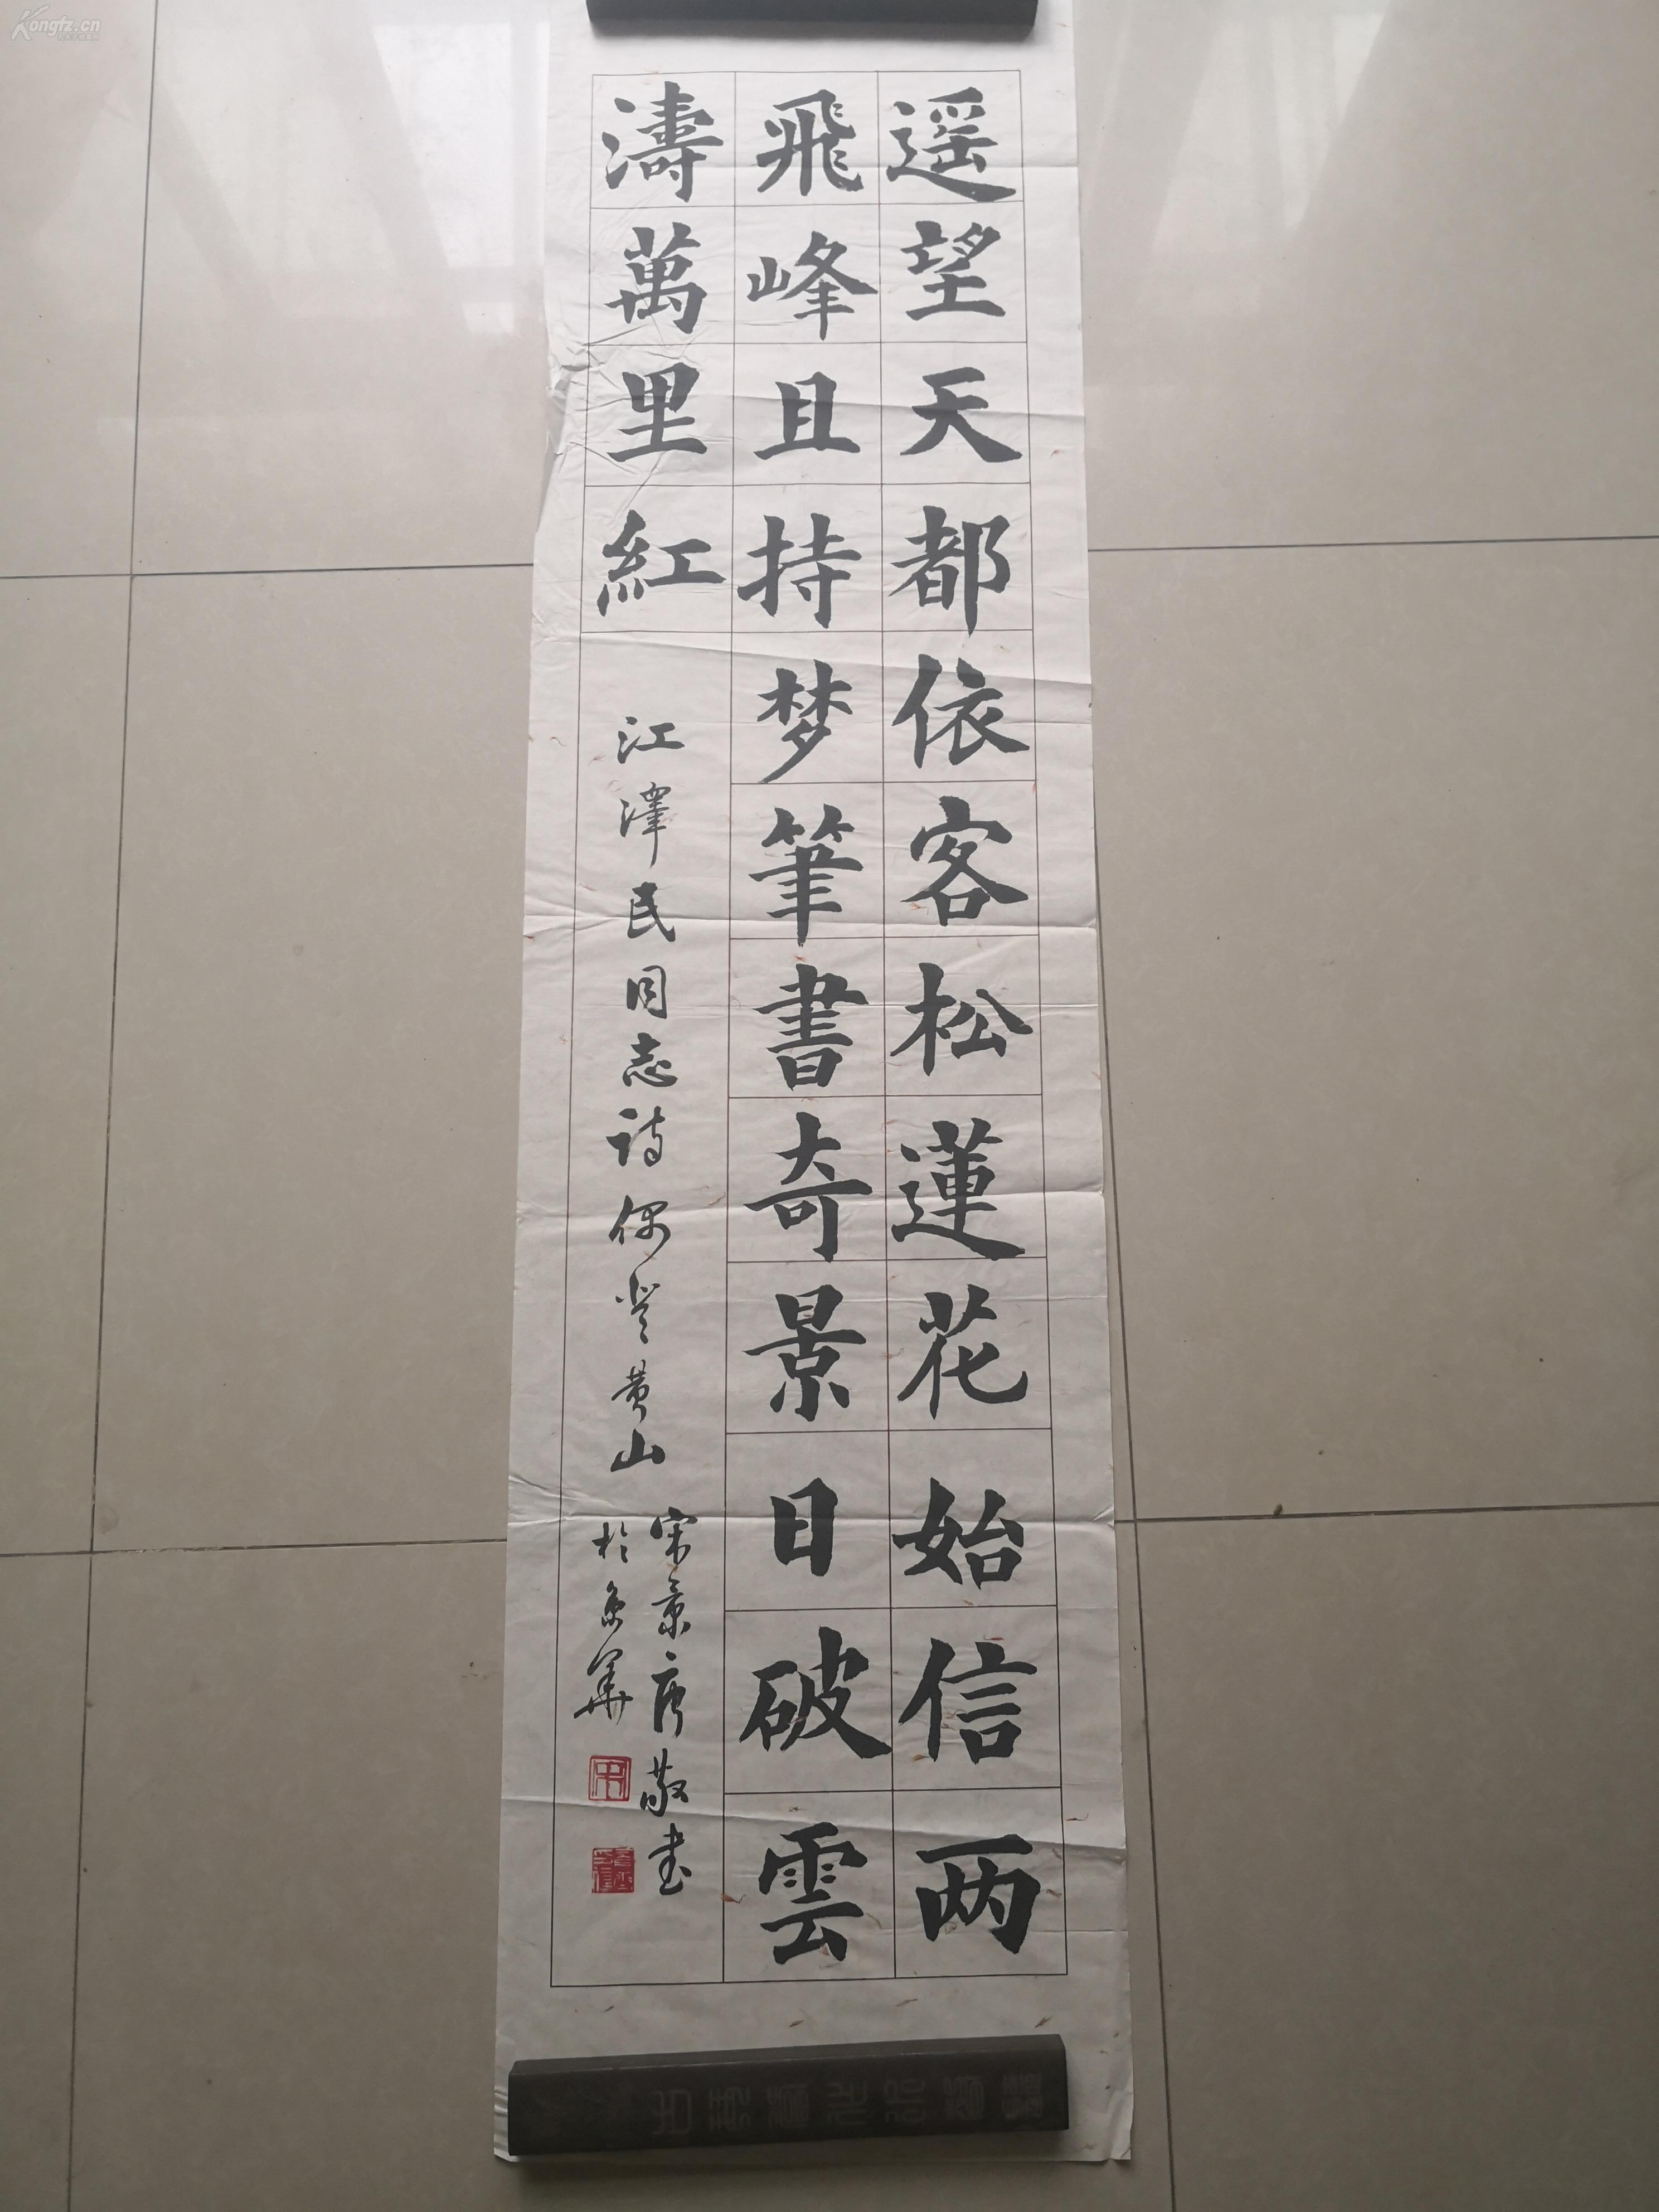 遥望天都依客松蓮花始信两
飛峰且持梦筆書奇景日破雲
濤萬里紅
江澤民同志诗偶登黄山
宋景唐敬书
於京華
Kongfz.cn